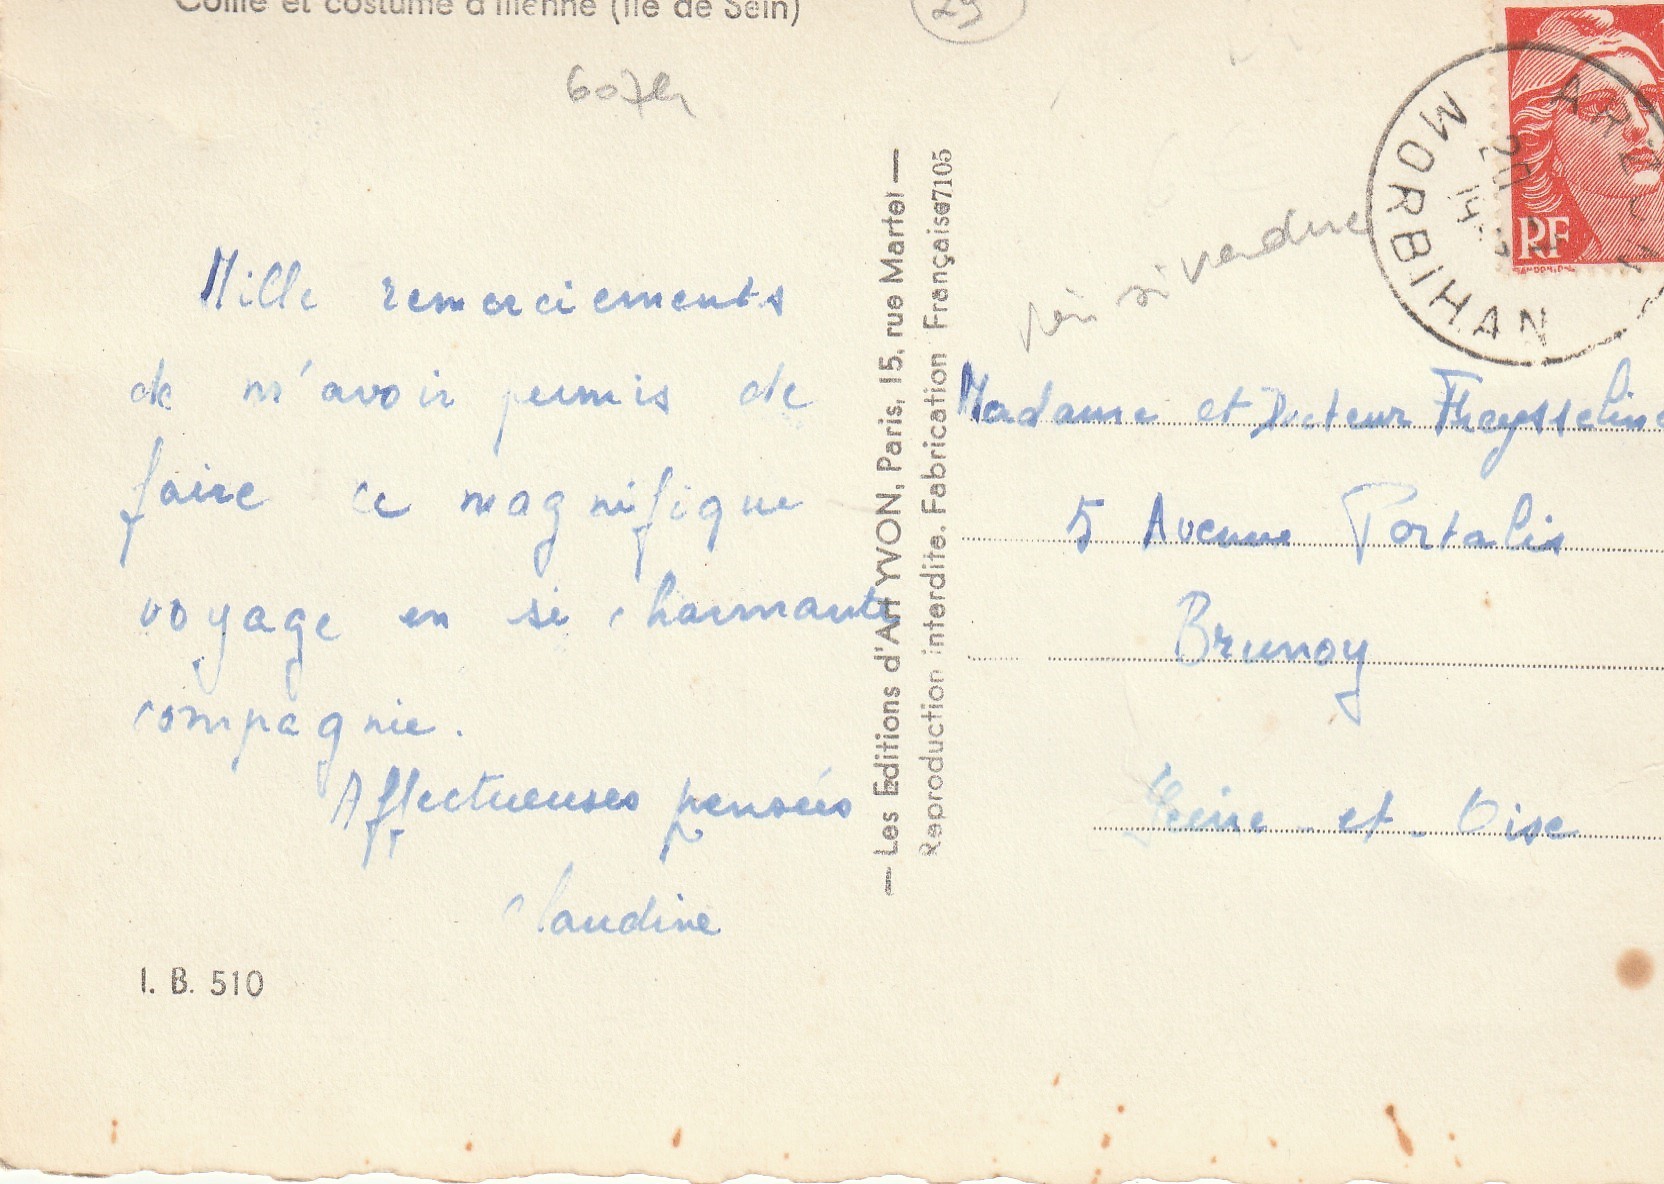 Coiffe et costume d'Ilienne (Ile de Sein)
29
Mille remerciements
de m'avoir permis de
faire ce magnifique
voyage en si charmante
compagnie.
Affectueuses pensées
Claudine
I. B. 510
— Les Editions d'Art YVON, Paris, 15, rue Martel —
Reproduction interdite. Fabrication Française 7105
MORBIHAN
RF
Madame et Docteur
5 Avenue Portalis
Brunoy
Seine-et-Oise